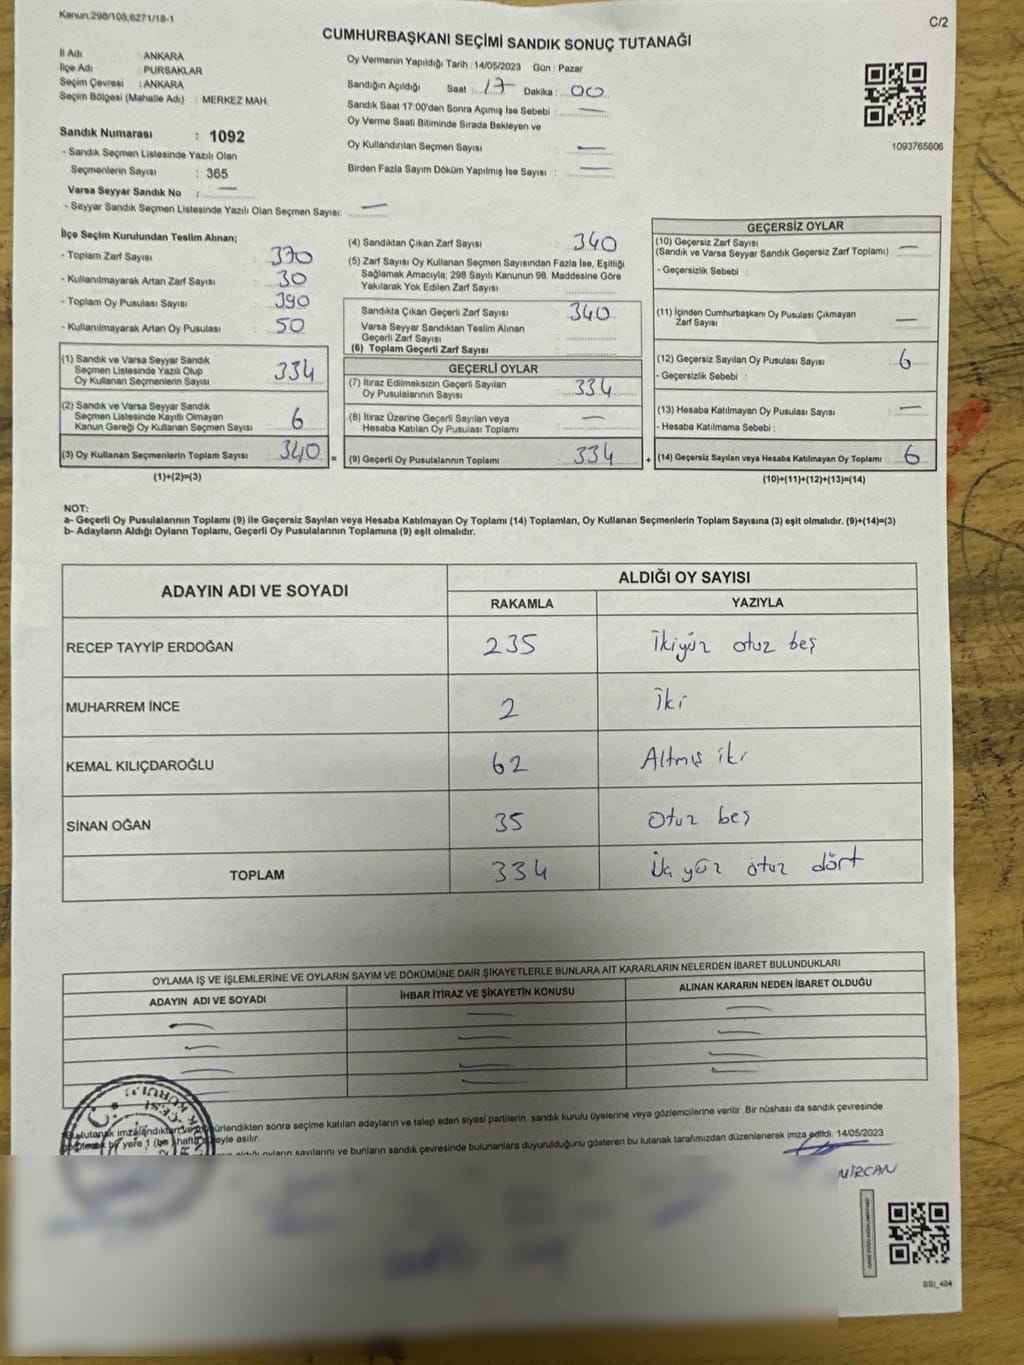 Kanun;298/105,6271/18-1
C/2
CUMHURBAŞKANI SEÇİMİ SANDIK SONUÇ TUTANAĞI
İl Adı : ANKARA
İlçe Adı : PURSAKLAR
Seçim Çevresi : ANKARA
Seçim Bölgesi (Mahalle Adı) : MERKEZ MAH.
Sandık Numarası : 1092
- Sandık Seçmen Listesinde Yazılı Olan
Seçmenlerin Sayısı : 365
Varsa Seyyar Sandık No : —
- Seyyar Sandık Seçmen Listesinde Yazılı Olan Seçmen Sayısı: —
Oy Vermenin Yapıldığı Tarih : 14/05/2023 Gün : Pazar
Sandığın Açıldığı Saat : 17 Dakika : 00
Sandık Saat 17:00'den Sonra Açımış İse Sebebi : —
Oy Verme Saati Bitiminde Sırada Bekleyen ve
Oy Kullandırılan Seçmen Sayısı : —
Birden Fazla Sayım Döküm Yapılmış İse Sayısı : —
1093765606
İlçe Seçim Kurulundan Teslim Alınan;
- Toplam Zarf Sayısı : 370
- Kullanılmayarak Artan Zarf Sayısı : 30
- Toplam Oy Pusulası Sayısı : 390
- Kullanılmayarak Artan Oy Pusulası : 50
(1) Sandık ve Varsa Seyyar Sandık
Seçmen Listesinde Yazılı Olup
Oy Kullanan Seçmenlerin Sayısı : 334
(2) Sandık ve Varsa Seyyar Sandık
Seçmen Listesinde Kayıtlı Olmayan
Kanun Gereği Oy Kullanan Seçmen Sayısı : 6
(3) Oy Kullanan Seçmenlerin Toplam Sayısı : 340 =
(1)+(2)=(3)
(4) Sandıktan Çıkan Zarf Sayısı : 340
(5) Zarf Sayısı Oy Kullanan Seçmen Sayısından Fazla İse, Eşitliği
Sağlamak Amacıyla; 298 Sayılı Kanunun 98. Maddesine Göre
Yakılarak Yok Edilen Zarf Sayısı :
Sandıkta Çıkan Geçerli Zarf Sayısı : 340
Varsa Seyyar Sandıktan Teslim Alınan
Geçerli Zarf Sayısı :
(6) Toplam Geçerli Zarf Sayısı :
GEÇERLİ OYLAR
(7) İtiraz Edilmeksizin Geçerli Sayılan
Oy Pusulasının Sayısı : 334
(8) İtiraz Üzerine Geçerli Sayılan veya
Hesaba Katılan Oy Pusulası Toplamı : —
(9) Geçerli Oy Pusulalarının Toplamı : 334 +
GEÇERSİZ OYLAR
(10) Geçersiz Zarf Sayısı
(Sandık ve Varsa Seyyar Sandık Geçersiz Zarf Toplamı) : —
- Geçersizlik Sebebi :
(11) İçinden Cumhurbaşkanı Oy Pusulası Çıkmayan
Zarf Sayısı : —
(12) Geçersiz Sayılan Oy Pusulası Sayısı : 6
- Geçersizlik Sebebi :
(13) Hesaba Katılmayan Oy Pusulası Sayısı : —
- Hesaba Katılmama Sebebi :
(14) Geçersiz Sayılan veya Hesaba Katılmayan Oy Toplamı : 6
(10)+(11)+(12)+(13)=(14)
NOT:
a- Geçerli Oy Pusulalarının Toplamı (9) ile Geçersiz Sayılan veya Hesaba Katılmayan Oy Toplamı (14) Toplamları, Oy Kullanan Seçmenlerin Toplam Sayısına (3) eşit olmalıdır. (9)+(14)=(3)
b- Adayların Aldığı Oyların Toplamı, Geçerli Oy Pusulalarının Toplamına (9) eşit olmalıdır.
ADAYIN ADI VE SOYADI
ALDIĞI OY SAYISI
RAKAMLA YAZIYLA
RECEP TAYYİP ERDOĞAN 235 İkiyüz otuz beş
MUHARREM İNCE 2 İki
KEMAL KILIÇDAROĞLU 62 Altmış iki
SİNAN OĞAN 35 Otuz beş
TOPLAM 334 Üç yüz otuz dört
OYLAMA İŞ VE İŞLEMLERİNE VE OYLARIN SAYIM VE DÖKÜMÜNE DAİR ŞİKAYETLERLE BUNLARA AİT KARARLARIN NELERDEN İBARET BULUNDUKLARI
ADAYIN ADI VE SOYADI İHBAR İTİRAZ VE ŞİKAYETİN KONUSU ALINAN KARARIN NEDEN İBARET OLDUĞU
Bu tutanak imzalandıktan ve mühürlendikten sonra seçime katılan adayların ve talep eden siyasi partilerin sandık kurulu üyelerine veya gözlemcilerine verilir. Bir nüshası da sandık çevresinde
bir yere 1 (bir) hafta süreyle asılır.
aldığı oyların sayılarını ve bunların sandık çevresinde bulunanlara duyurulduğunu gösteren bu tutanak tarafımızdan düzenlenerek imza edildi. 14/05/2023
MİRCAN
SSI_404